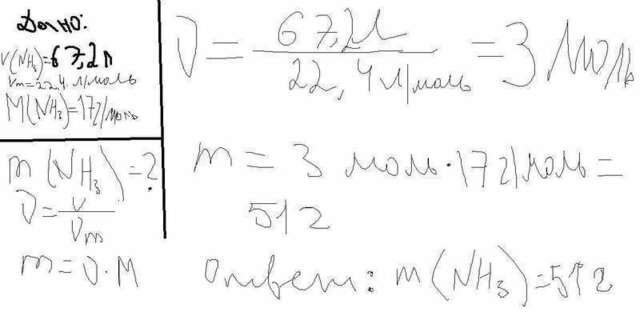 Дано:
V(NH₃)=67,2л
Vm=22,4 л/моль
M(NH₃)=17г/моль
m(NH₃)=?
ν=V/Vm
m=ν·M
ν=67,2л/22,4л/моль=3 моль
m=3 моль·17г/моль=
51г
Ответ: m(NH₃)=51г